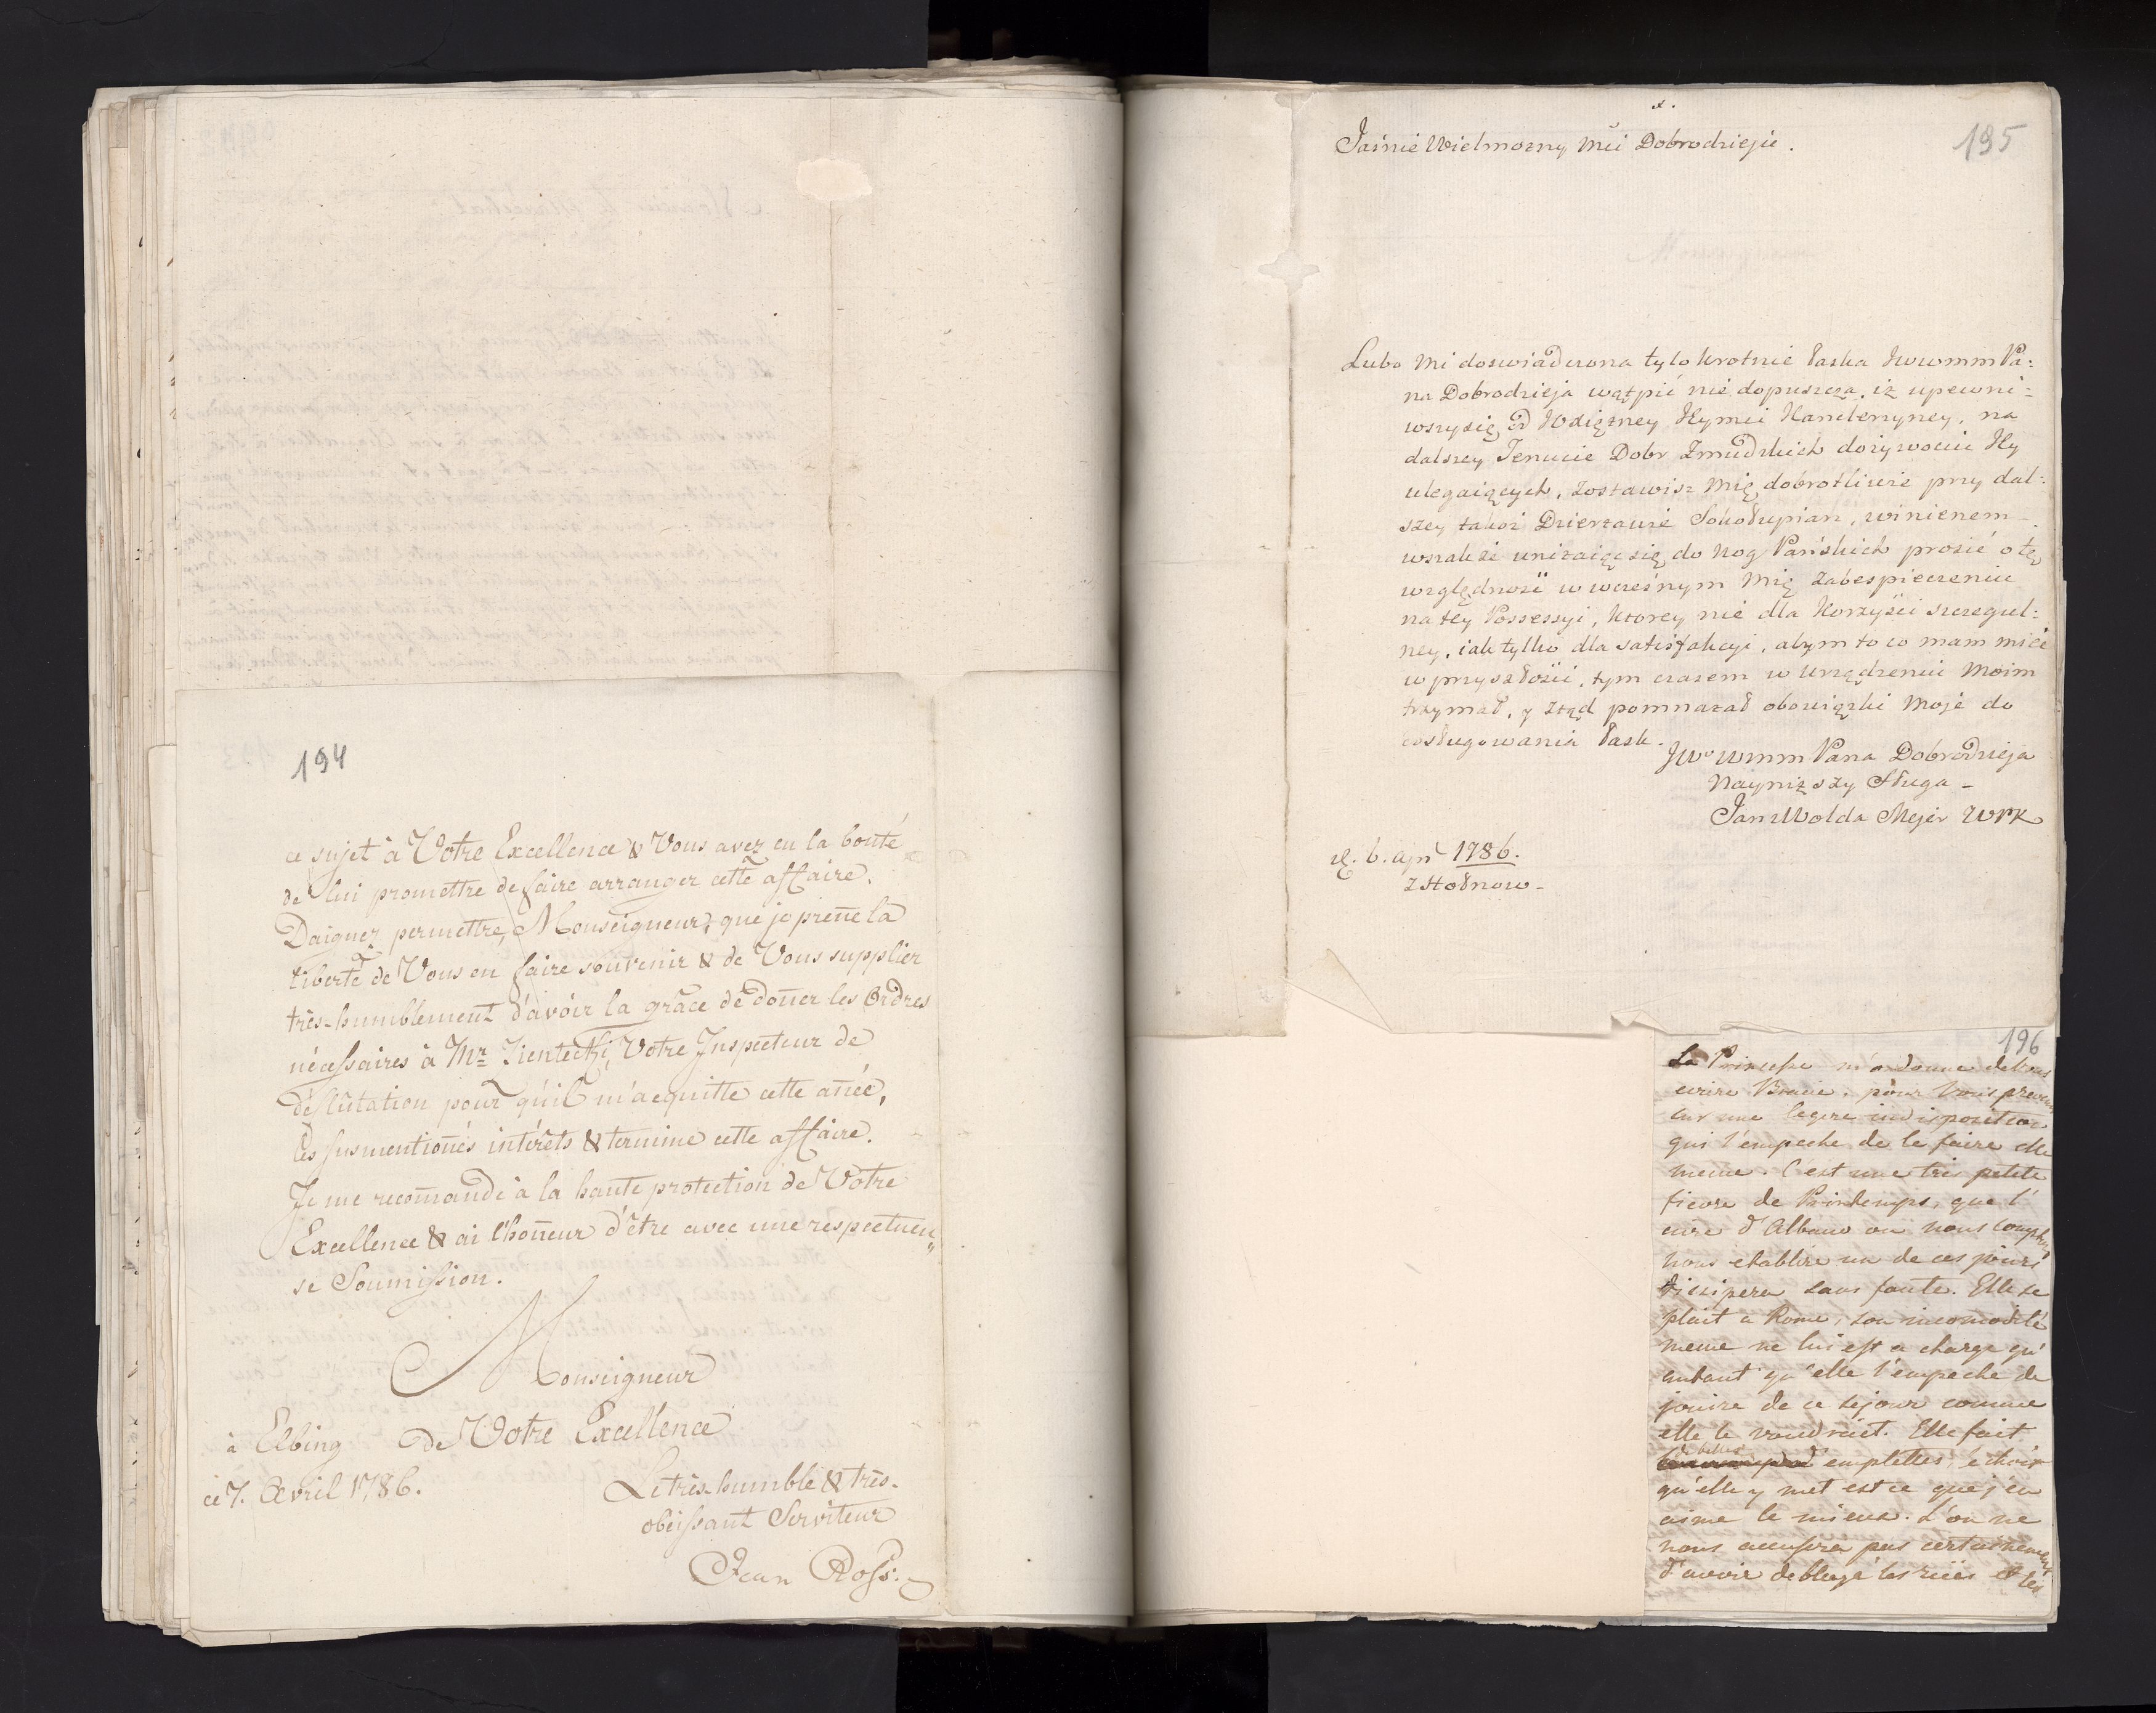 194
ce sujet à Votre Excellence & Vous avez eu la bonté
de lui promettre de faire arranger cette affaire.
Daignez permettre, Monseigneur, que je prene la
liberté de Vous en faire souvenir & de Vous supplier
très-humblement d'avoir la grace de doner les Ordres
nécessaires à Mr Votre Inspecteur de
pour qu'il m'acquitte cette anée,
les susmentionés intérêts & termine cette affaire.
Je me recomande à la haute protection de Votre
Excellence & ai l'honeur d'être avec une respectueu„
se Soumission.
Monseigneur
de Votre Excellence
à Elbing
ce 7. Avril 1786.
Le très-humble & très-
obéissant Serviteur
Jean Ross.
195
Jaśnie Wielmozny Mci Dobrodzieju.
Lubo mi doswiadczona tylokrotnie łaska JWWmm Pa:
na Dobrodzieja wątpić nie dopuszcza, iz upewni:
wszysię od Xdięzney Jeymci Kanclerzyney, na
dalszey Tenucie Dobr Zmudzkich dozywociu Jey
ulegaiących, zostawisz mię dobrotliwie przy dal:
szey takoz Dzierzawie Sokołupian, winienem
wszakze unizaiąc się do nog Pańskich prosić o tę
względność w wcześnym mię zabespieczeniu
na tey Possessyi, ktorey nie dla korzyści szczegul:
ney, iak tylko dla satisfakcyi, abym to co mam mieć
w przyszłości, tym czasem w urządzeniu moim
trzymał, y ztąd pomnazał obowiązki moje do
łask.
JWo Wmm Pana Dobrodzieja
Nayniższy Sługa -
Jan Wolda Mejer WPK
d. 6. apr 1786.
196
La Princesse m'a donné de vous
ecrire pour vous preven
sur une legere indisposition
qui l'empeche de le faire elle
meme. C'est une tres petite
fievre de Printemps, que l'
aire d'Albano ou nous compton
nous etablire un de ces jours
disipera sans faute. Elle se
plait a Rome, son incomodité
meme ne lui est a charge qu'
autant qu'elle l'empeche de
jouire de ce sejour comme
elle le voudroit. Elle fait
de belles
emplettes, le choix
qu'elle y met est ce que j'en
aime le mieux. L'on ne
nous accusera pas certainement
d'avoir les et les